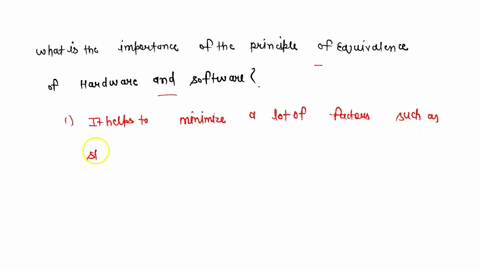 what is the importance of the principle of Equivalence
of Hardware and software?
1) It helps to minimize a lot of factors such as
sl